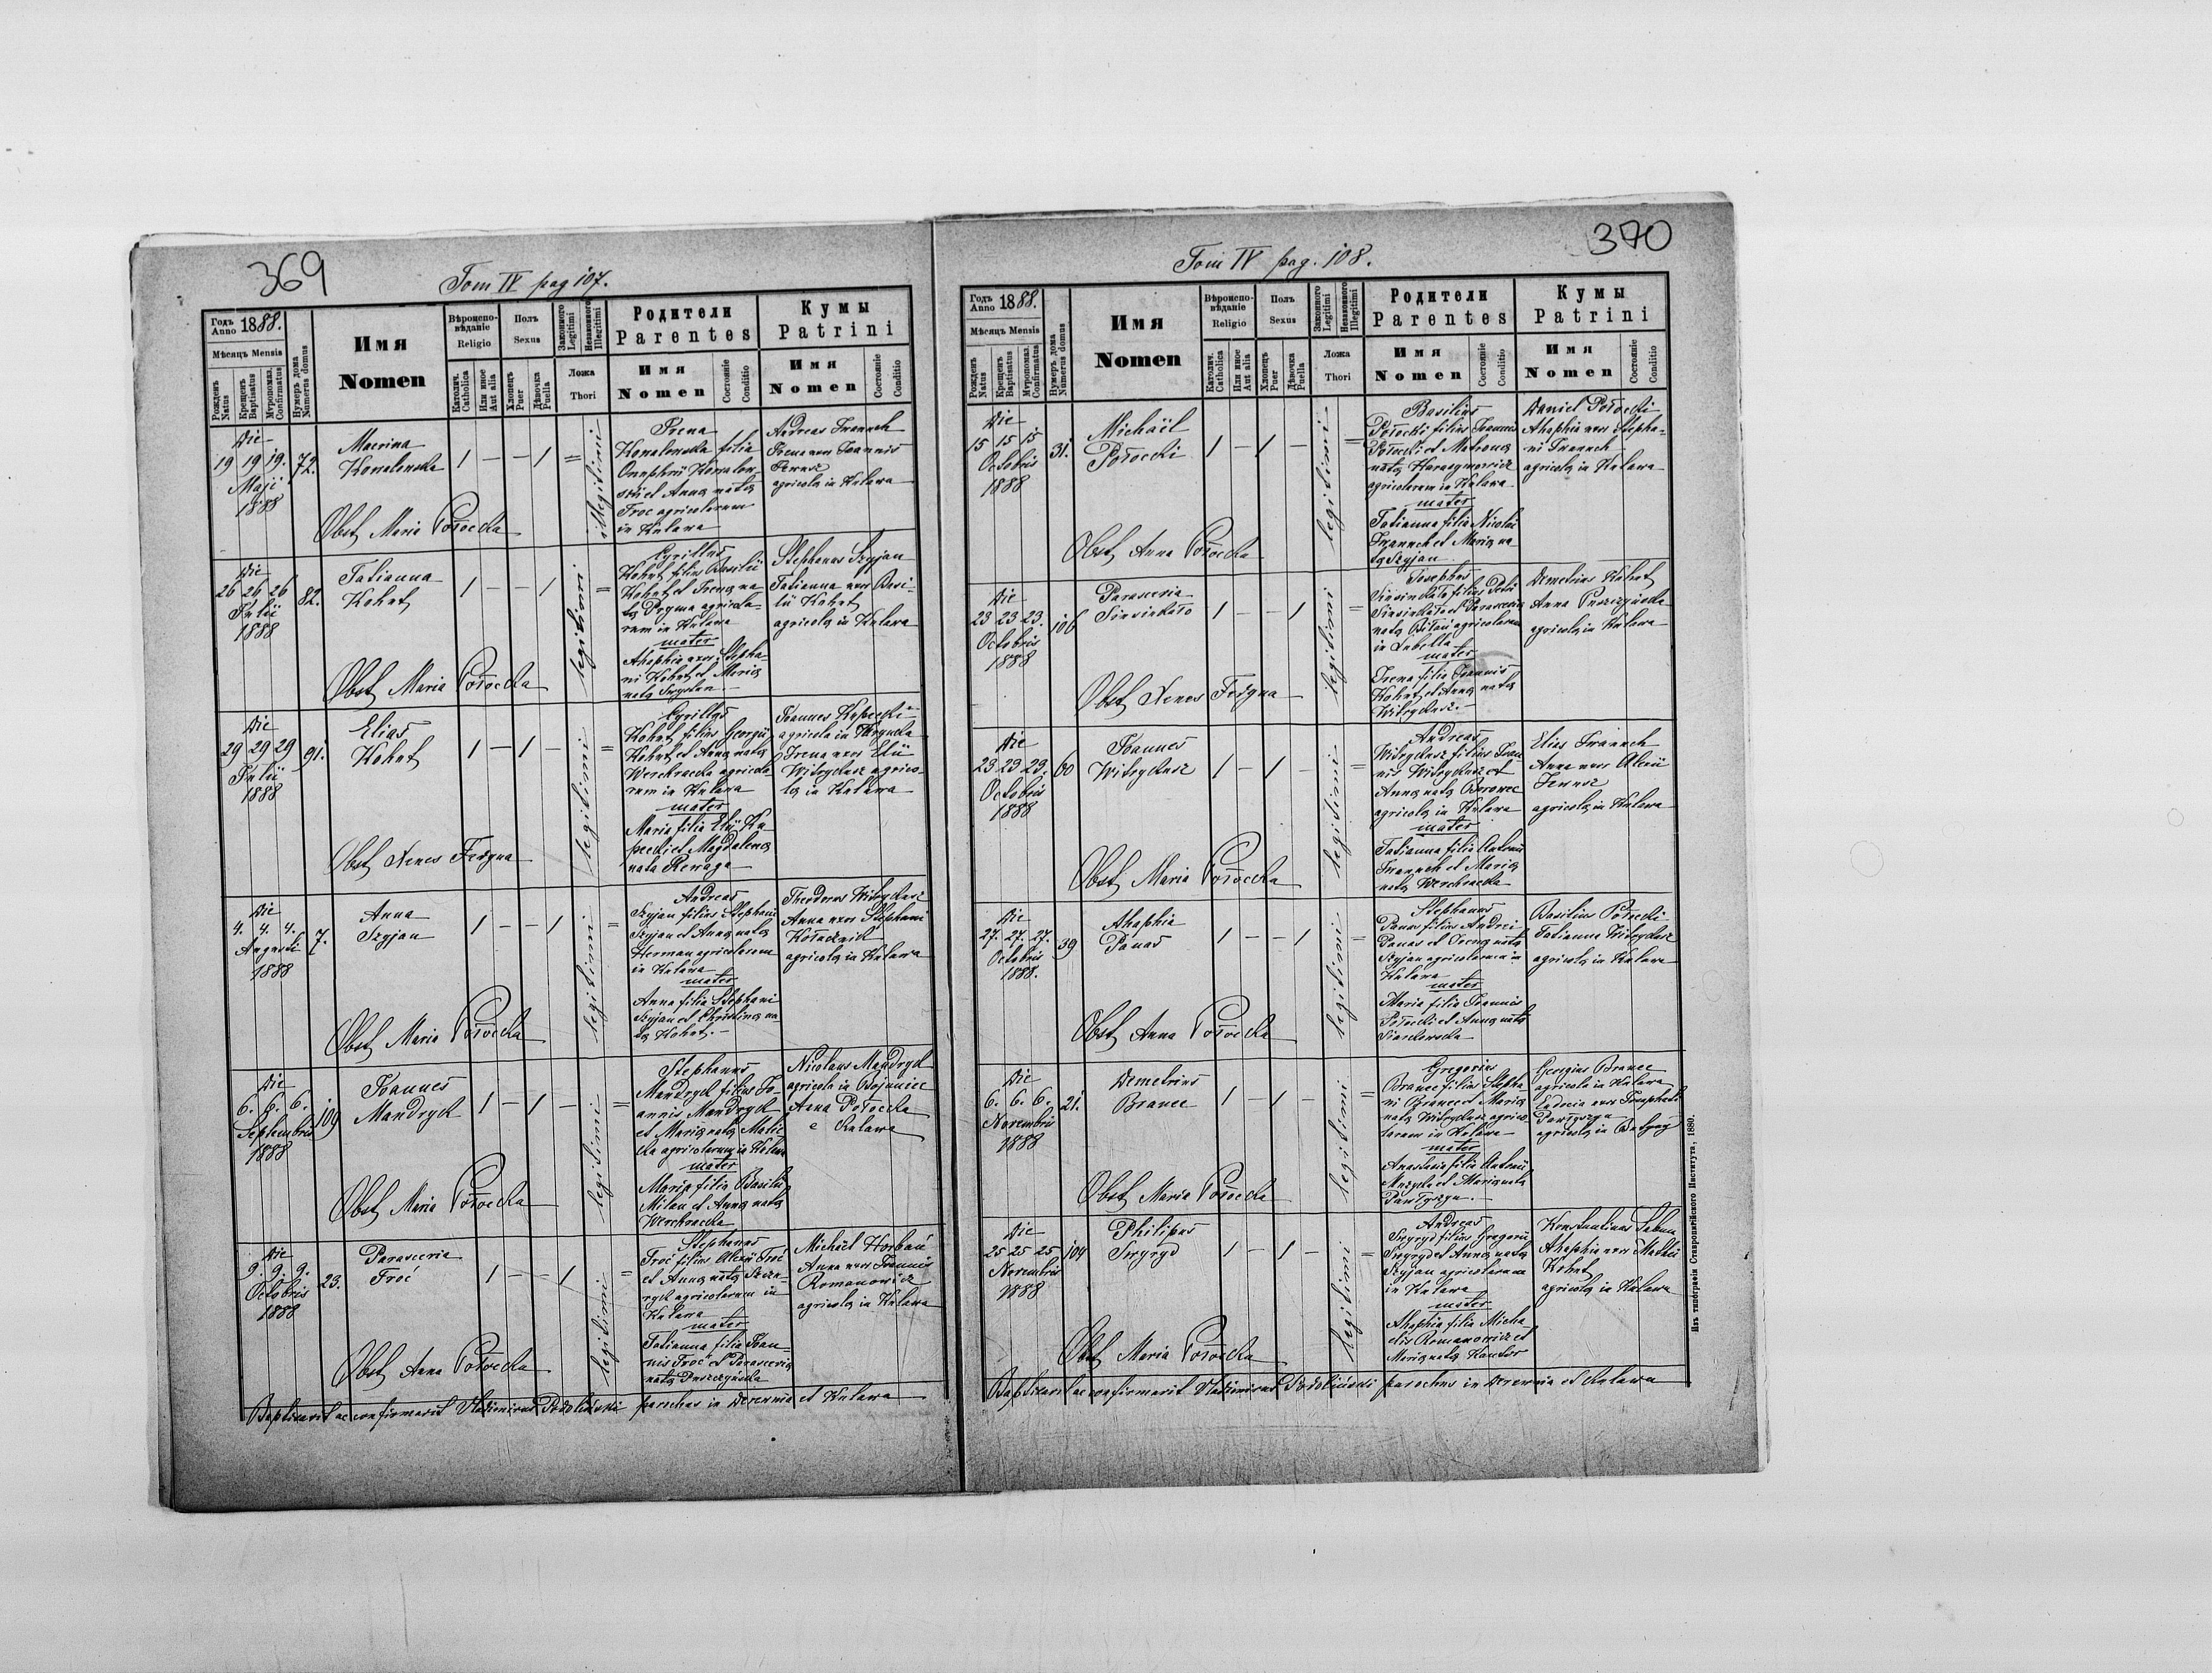 369
Tom IV pag 107.
Годъ Anno 1888.
Мѣсяцъ Mensis
Рожденъ Natus
Крещенъ Baptisatus
Муропомаз. Confirmatus
Нумеръ дома Numerus domus
Имя
Nomen
Вѣроиспо-
вѣданіе
Religio
Католич. Catholica
Или иное Aut alia
Полъ
Sexus
Хлопецъ Puer
Дѣвочка Puella
Законного Legitimi
Незаконного Illegitimi
Ложа
Thori
Родители
Parentes
Имя
Nomen
Состояніе Conditio
Кумы
Patrini
Имя
Nomen
Состояніе Conditio
Die
19 19 19. 72.
Maji
1888
Macrina
Konalenska
1 — — 1
illegitimi
Irena
Konalenska filia
Onuphrii Konalen-
ski et Anna nata
Troc agricolarum
in Kulawa
Andreas Iwanech
Irena uxor Joannis
agricola in Kulawa
Obst Maria Połocka
Die
26 26 26 82.
Julii
1888
Tatianna
Kohut
1 — — 1
legitimi
Cyrillus
Kohut filius Basilii
Kohut et Irena na-
ta Dryma agricola-
rum in Kulawa
mater
Ahaphia uxor Stepha-
ni Kohut et Maria
nata
Stephanus Szyjan
Tatianna uxor Basi-
lii Kohut
agricola in Kulawa
Obst Maria Połocka
Die
29 29 29 91.
Julii
1888
Elias
Kohut
1 — 1 —
legitimi
Cyrillus
Kohut filius Georgii
Kohut et Anna nata
Werchracka agricola
rum in Kulawa
mater
Maria filia Elii Ka-
pecki et Magdalena
nata
Joannes Kapecki
agricola in
Irena uxor Elii
Witrykusz agrico-
la in Kulawa
Obst Nenes Fedyna
Die
4. 4. 4. 7.
Augusti
1888
Anna
Szyjan
1 — — 1
legitimi
Andreas
Szyjan filius Stephani
Szyjan et Anna nata
Herman agricolarum
in Kulawa
mater
Anna filia Stephani
Szyjan et Christina na-
ta Kohut.
Theodorus Witrykusz
Anna uxor Stephani
Kołacznik
agricola in Kulawa
Obst Maria Połocka
Die
6. 6. 6. 109
Septembris
1888
Joannes
Mandryk
1 — 1 —
legitimi
Stephanus
Mandryk filius Jo-
annis Mandryk
et Maria nata Matic
ka agricolarum in Kulawa
mater
Maria filia Basilii
Milan et Anna nata
Werchracka
Nicolaus Mandryk
agricola in Bojaniec
Anna Połocka
e Kulawa
Obst Maria Połocka
Die
9. 9. 9. 23.
Octobris
1888
Parasceria
Troć
1 — — 1
legitimi
Stephanus
Troć filius Alexii Troć
et Anna nata
agricolarum in
Kulawa
mater
Tatianna filia Joan-
nis Troć et Parasceria
nata Puszczyńska
Michaël Horbań
Anna uxor Joannis
Romanowicz
agricola in Kulawa
Obst Anna Połocka
Baptisavit ac confirmavit Vladimirus Podoliński parochus in Derewnia et Kulawa
370
Tom IV pag. 108.
Годъ Anno 1888.
Мѣсяцъ Mensis
Рожденъ Natus
Крещенъ Baptisatus
Муропомаз. Confirmatus
Нумеръ дома Numerus domus
Имя
Nomen
Вѣроиспо-
вѣданіе
Religio
Католич. Catholica
Или иное Aut alia
Полъ
Sexus
Хлопецъ Puer
Дѣвочка Puella
Законного Legitimi
Незаконного Illegitimi
Ложа
Thori
Родители
Parentes
Имя
Nomen
Состояніе Conditio
Кумы
Patrini
Имя
Nomen
Состояніе Conditio
Die
15 15 15 31.
Octobris
1888
Michaël
Połocki
1 — 1 —
legitimi
Basilius
Połocki filius Joannis
Połocki et Matrona
nata Harasymowicz
agricolarum in Kulawa
mater
Tatianna filia Nicolai
Iwanech et Maria na
ta Szyjan
Daniel Połocki
Ahaphia uxor Stepha-
ni Iwanech
agricola in Kulawa
Obst Anna Połocka
Die
23 23 23. 106
Octobris
1888
Parasceria
Sinsinkało
1 — — 1
legitimi
Josephus
Sinsinkało filius Petri
Sinsinkało et Parasceria
nata agricolarum
in Lubella
mater
Irena filia Joannis
Kohut et Anna nata
Witrykusz.
Demetrius Kohut
Anna Puszczyńska
agricola in Kulawa
Obst Nenes Fedyna
Die
23 23 23. 60
Octobris
1888
Joannes
Witrykusz
1 — 1 —
legitimi
Andreas
Witrykusz filius Joan
nis Witrykusz et
Anna nata Borowec
agricola in Kulawa
mater
Tatianna filia
Iwanech et Maria
nata Werchracka
Elias Iwanech
Anna uxor Alexii
agricola in Kulawa
Obst Maria Połocka
Die
27. 27. 27. 39
Octobris
1888.
Ahaphia
Panas
1 — — 1
legitimi
Stephanus
Panas filius Andrei
Panas et Irena nata
Szyjan agricolarum in
Kulawa
mater
Maria filia Joannis
Połocki et Anna nata
Basilius Połocki
Tatianna Witrykusz
agricola in Kulawa
Obst Anna Połocka
Die
6. 6. 6. 21.
Novembris
1888
Demetrius
Branec
1 — 1 —
legitimi
Gregorius
Branec filius Stepha
ni Branec et Maria
nata Witrykusz agrico
larum in Kulawa
mater
Anastasia filia
et Maria nata
Pawłyszyn.
Georgius Branec
agricola in Kulawa
Eudocia uxor Josaphati
Pawłyszyn
agricola in
Obst Maria Połocka
Die
25 25 25 104
Novembris
1888
Philipus
Smyryd
1 — 1 —
legitimi
Andreas
Smyryd filius Gregorii
Smyryd et Anna nata
Szyjan agricolarum
in Kulawa
mater
Ahaphia filia Micha-
elis Romanowicz et
Maria nata Kantor
Konstantinus Labun
Ahaphia uxor
Kohut
agricola in Kulawa
Obst Maria Połocka
Baptisavit ac confirmavit Vladimirus Podoliński parochus in Derewnia et Kulawa
Изъ типографіи Ставропигійского Института, 1880.